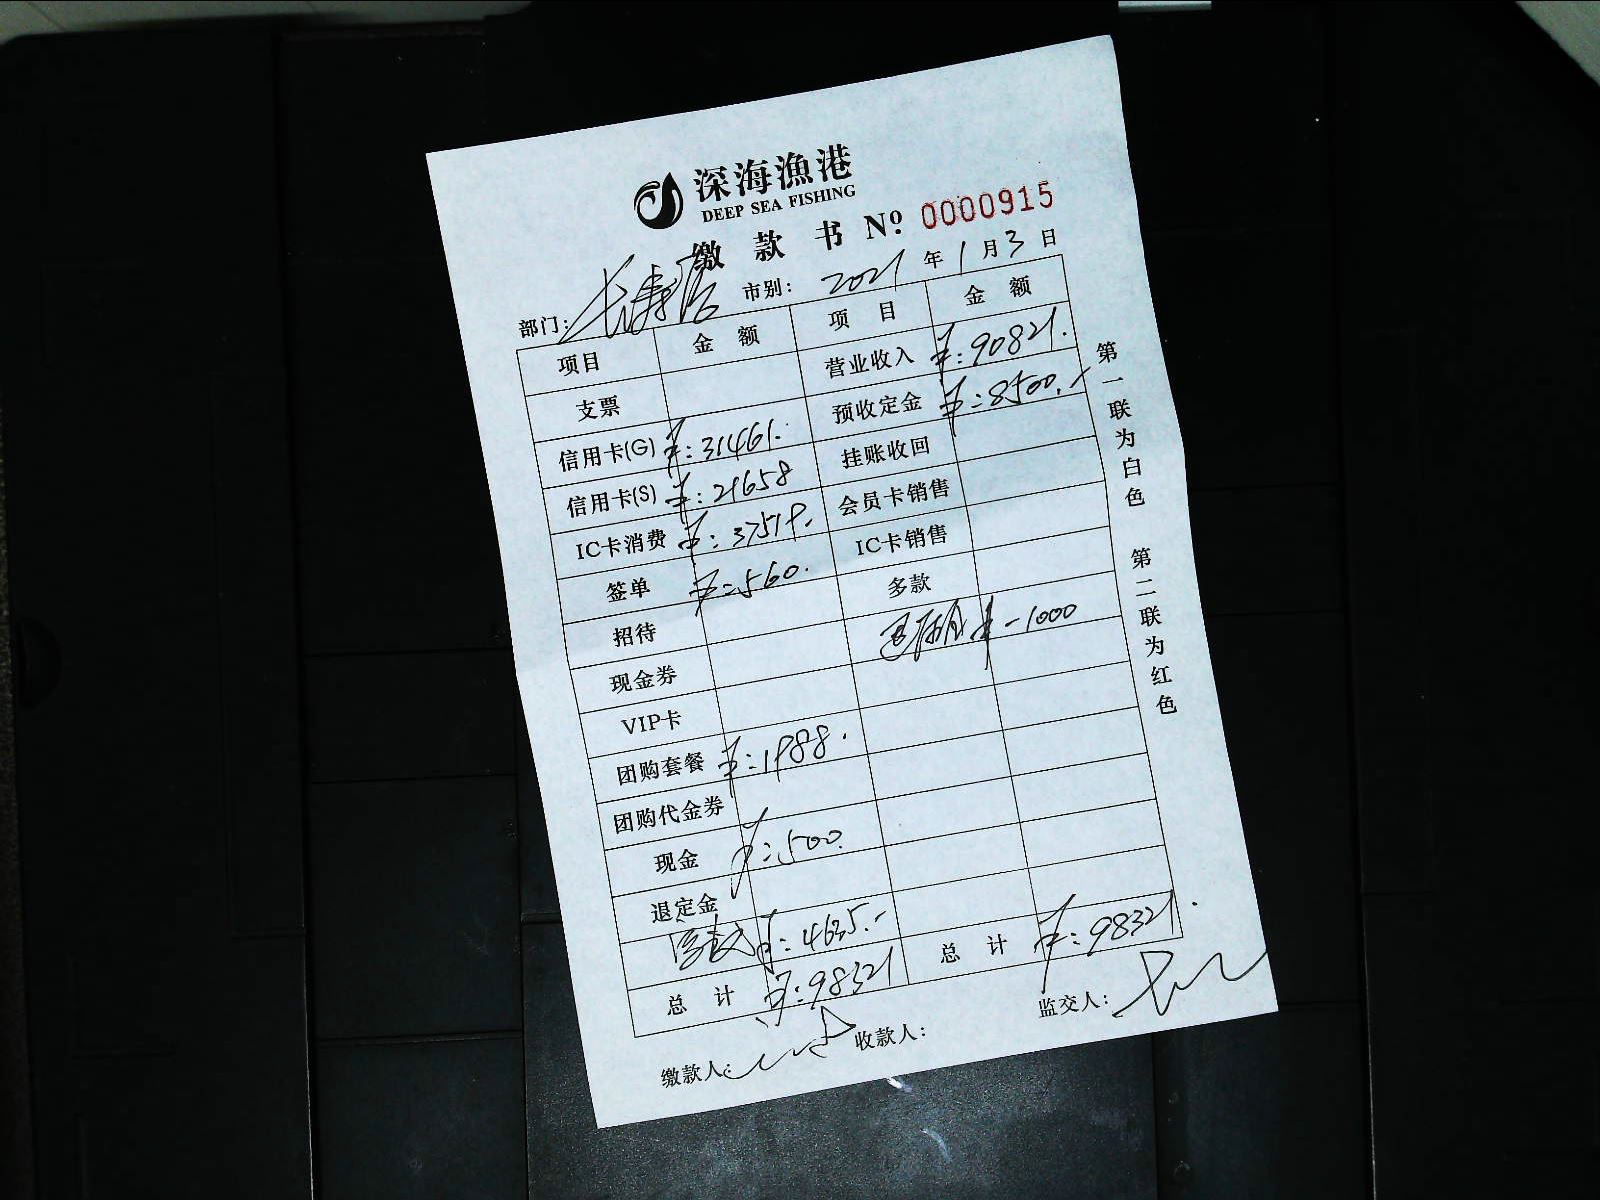 深海漁港
DEEP SEA FISHING
缴款书 № 0000915
部门: 长寿店 市别: 2021年1月3日
项目 金额 项目 金额
支票 营业收入 ¥:90821.
信用卡(G) ¥:31461. 预收定金 ¥:8500.-
信用卡(S) ¥:21658 挂账收回
IC卡消费 ¥:37519. 会员卡销售
签单 ¥:560. IC卡销售
招待 多款
现金券 ¥-1000
VIP卡
团购套餐 ¥:1988.
团购代金券
现金 ¥:500.
退定金
¥:4635.-
总计 ¥:98321 总计 ¥:98321.
缴款人: 收款人: 监交人:
第一联为白色 第二联为红色